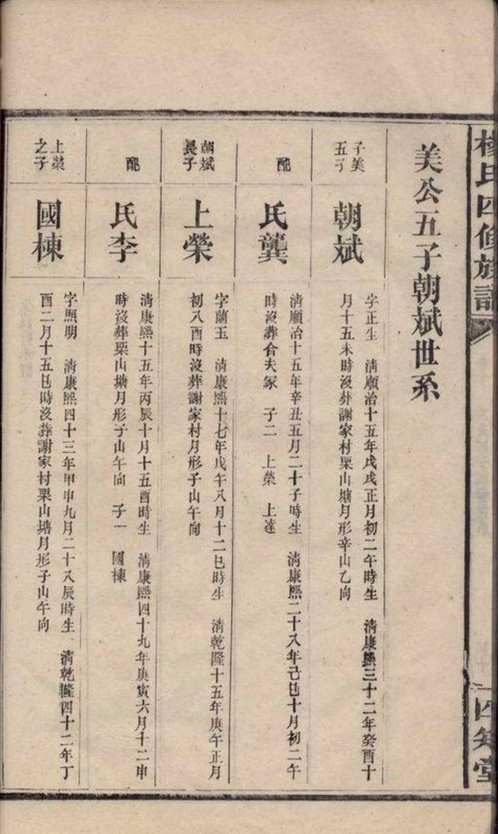 楊氏四修族譜
四知堂
美公五子朝斌世系
子美
五子
朝斌
字正生 清順治十五年戊戌正月初二午時生 清康熙三十二年癸酉十
月十五未時沒葬謝家村栗山塘月形辛山乙向
配
氏龔
清順治十五年辛丑五月二十子時生 清康熙二十八年己巳十月初二午
時沒葬合夫冢 子二 上榮 上達
朝斌
長子
上榮
字蘭玉 清康熙十七年戊午八月十二巳時生 清乾隆十五年庚午正月
初八酉時沒葬謝家村月形子山午向
配
氏李
清康熙十五年丙辰十月十五酉時生 清康熙四十九年庚寅六月十二申
時沒葬栗山塘月形子山午向 子一 國棟
上榮
之子
國棟
字照明 清康熙四十三年甲申九月二十八辰時生 清乾隆四十二年丁
酉二月十五巳時沒葬謝家村栗山塘月形子山午向